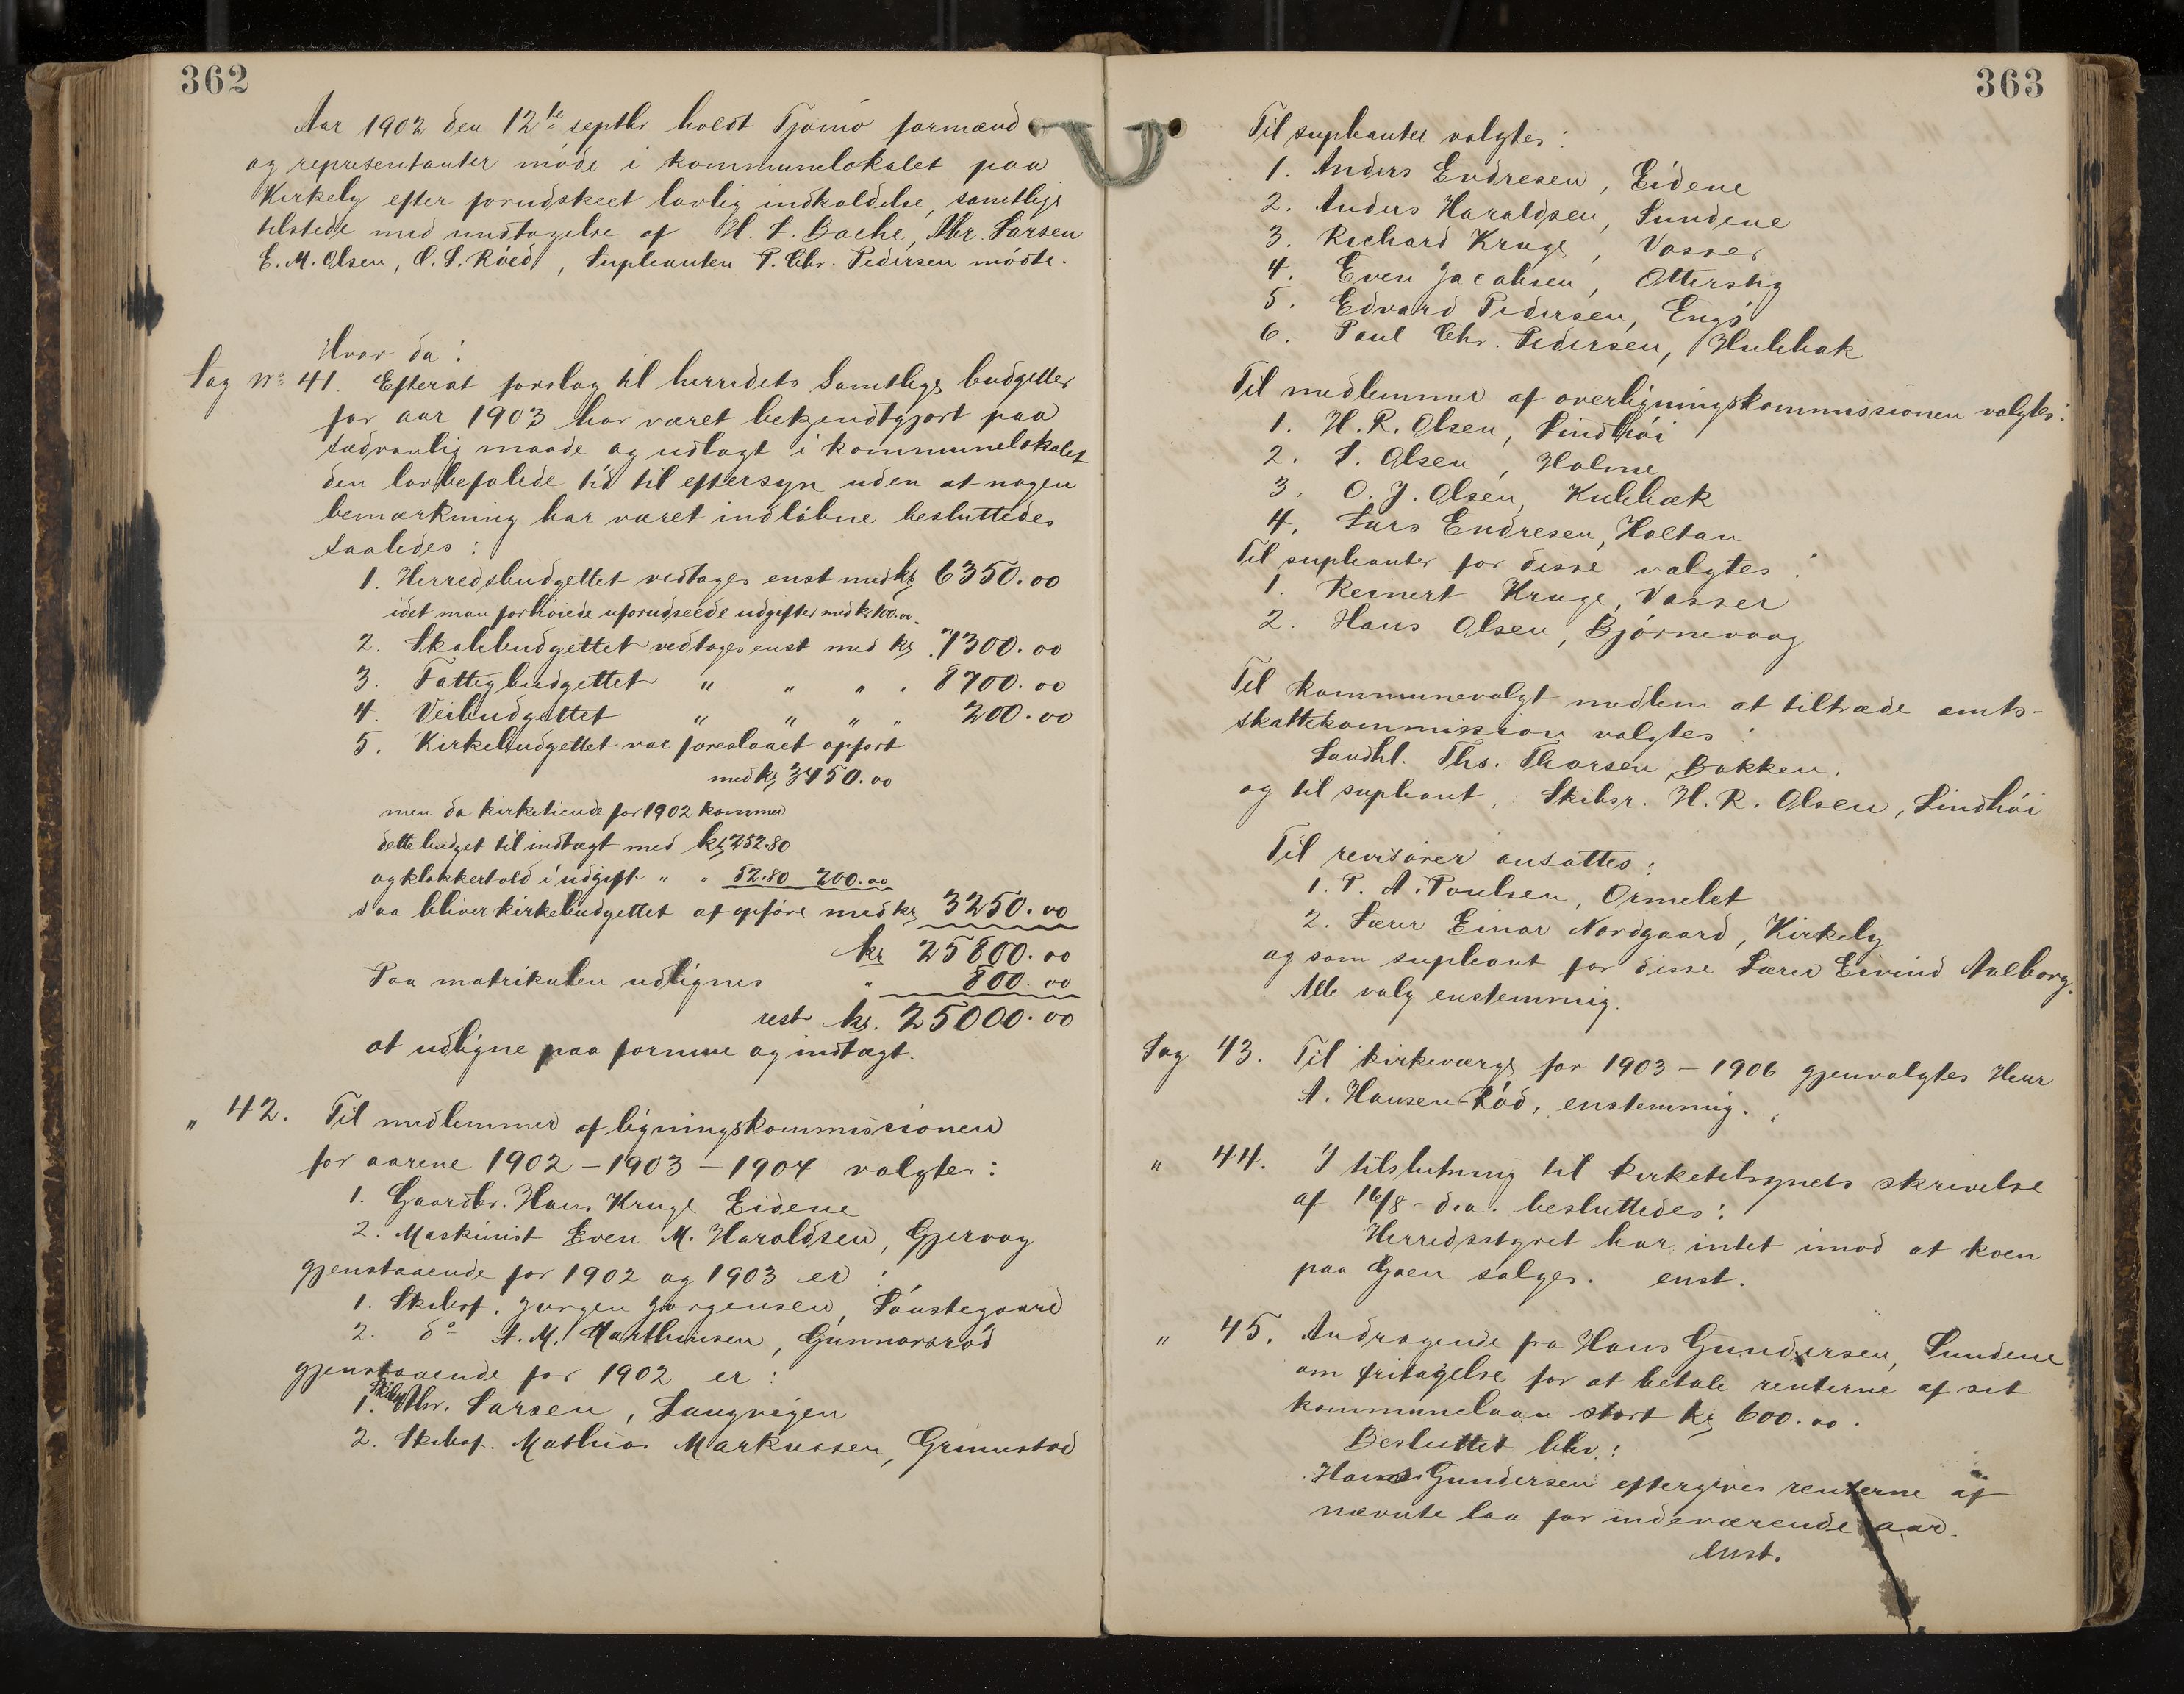 362
Aar 1902 den 12te septbr holdt Tjømø formænd
og representanter møde i kommunelokalet paa
Kirkely efter forudskeet lovlig indkaldelse, samtlige
tilstede med undtagelse af H. L. Bache, Abr. Larsen
E. M. Olsen, O. S. Röed, Supleanten P. Chr. Pedersen mødte.
Hvor da:
Sag No 41. Efterat forslag til herredets Samtlige budgetter
for aar 1903 har været bekjendtgjort paa
sædvanlig maade og udlagt i kommunelokalet
den lovbefalede tid til eftersyn uden at nogen
bemærkning har været indløbne besluttedes
saaledes:
1. Herredsbudgettet vedtages enst med kr 6350.00
idet man forhøiede uforudseede udgifter med kr 100.00.
2. Skolebudgettet vedtages enst med kr 7300.00
3. Fattigbudgettet " " " " 8700.00
4. Veibudgettet " " " " 200.00
5. Kirkebudgettet var foreslaaet opført
med kr 3450.00
men da kirketiende for 1902 kommer
dette budget til indtægt med kr 252.80
og klokkertold i udgift " " 52.80 200.00
saa bliver kirkebudgettet at opføre med kr 3250.00
kr 25800.00
Paa matrikulen udlignes " 800.00
rest kr. 25000.00
at udligne paa formue og indtægt.
" 42. Til medlemmer af ligningskommissionen
for aarene 1902 – 1903 – 1904 valgtes:
1. Gaardbr. Hans Kruge Eidene
2. Maskinist Even M. Haraldsen, Gjervaag
gjenstaaende for 1902 og 1903 er:
1. Skibsf. Jørgen Jørgensen, Søustegaard
2. do A. M. Marthinsen, Gunnarsrød
gjenstaaende for 1902 er:
1. Skibsf. Abr. Larsen, Langvigen
2. Skibsf. Mathias Markussen, Grimestad
363
Til supleanter valgtes:
1. Anders Endresen, Eidene
2. Anders Haraldsen, Sundene
3. Richard Kruge, Vasser
4. Even Jacobsen, Otterstig
5. Edvard Pedersen, Engø
6. Paul Chr. Pedersen, Hulbak
Til medlemmer af overligningskommissionen valgtes:
1. H. R. Olsen, Lindhøi
2. S. Olsen, Holme
3. O. J. Olsen, Kulbæk
4. Lars Endresen, Holtan
Til supleanter for disse valgtes:
1. Reinert Kruge, Vasser
2. Hans Olsen, Bjørnevaag
Til kommunevalgt medlem at tiltræde amts-
skattekommission valgtes:
Landhl. Ths. Thorsen, Bakken.
og til supleant, Skibsr. H. R. Olsen, Lindhøi
Til revisorer ansattes:
1. P. A. Poulsen, Ormelet
2. Lærer Einar Nordgaard, Kirkely
og som supleant for disse Lærer Eivind Aalborg.
Alle valg enstemmig.
Sag 43. Til kirkeværge for 1903 – 1906 gjenvalgtes Herr
A. Hansen-Rød, enstemmig.
" 44. I tilslutning til kirketilsynets skrivelse
af 16/8 d.a. besluttedes:
Herredsstyret har intet imod at koen
paa Gaen sælges. enst.
" 45. Andragende fra Hans Gundersen, Sundene
om fritagelse for at betale renterne af sit
kommunelaan stort kr 600.00.
Besluttet blev:
Hans Gundersen eftergives renterne af
nævnte laa for indeværende aar.
enst.